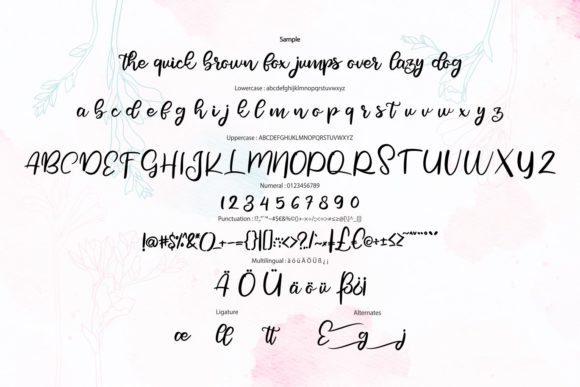 Sample
the quick brown fox jumps over lazy dog
Lowercase : abcdefghijklmnopqrstuvwxyz
a b c d e f g h i j k l m n o p q r s t u v w x y z
Uppercase : ABCDEFGHIJKLMNOPQRSTUVWXYZ
A B C D E F G H I J K L M N O P Q R S T U V W X Y Z
Numeral : 0123456789
1 2 3 4 5 6 7 8 9 0
Punctuation :
Multilingual : ä ö ü Ä Ö Ü ß ¿ ¡
Ä Ö Ü ä ö ü ß¿¡
Ligature Alternates
œ ll tt E g j